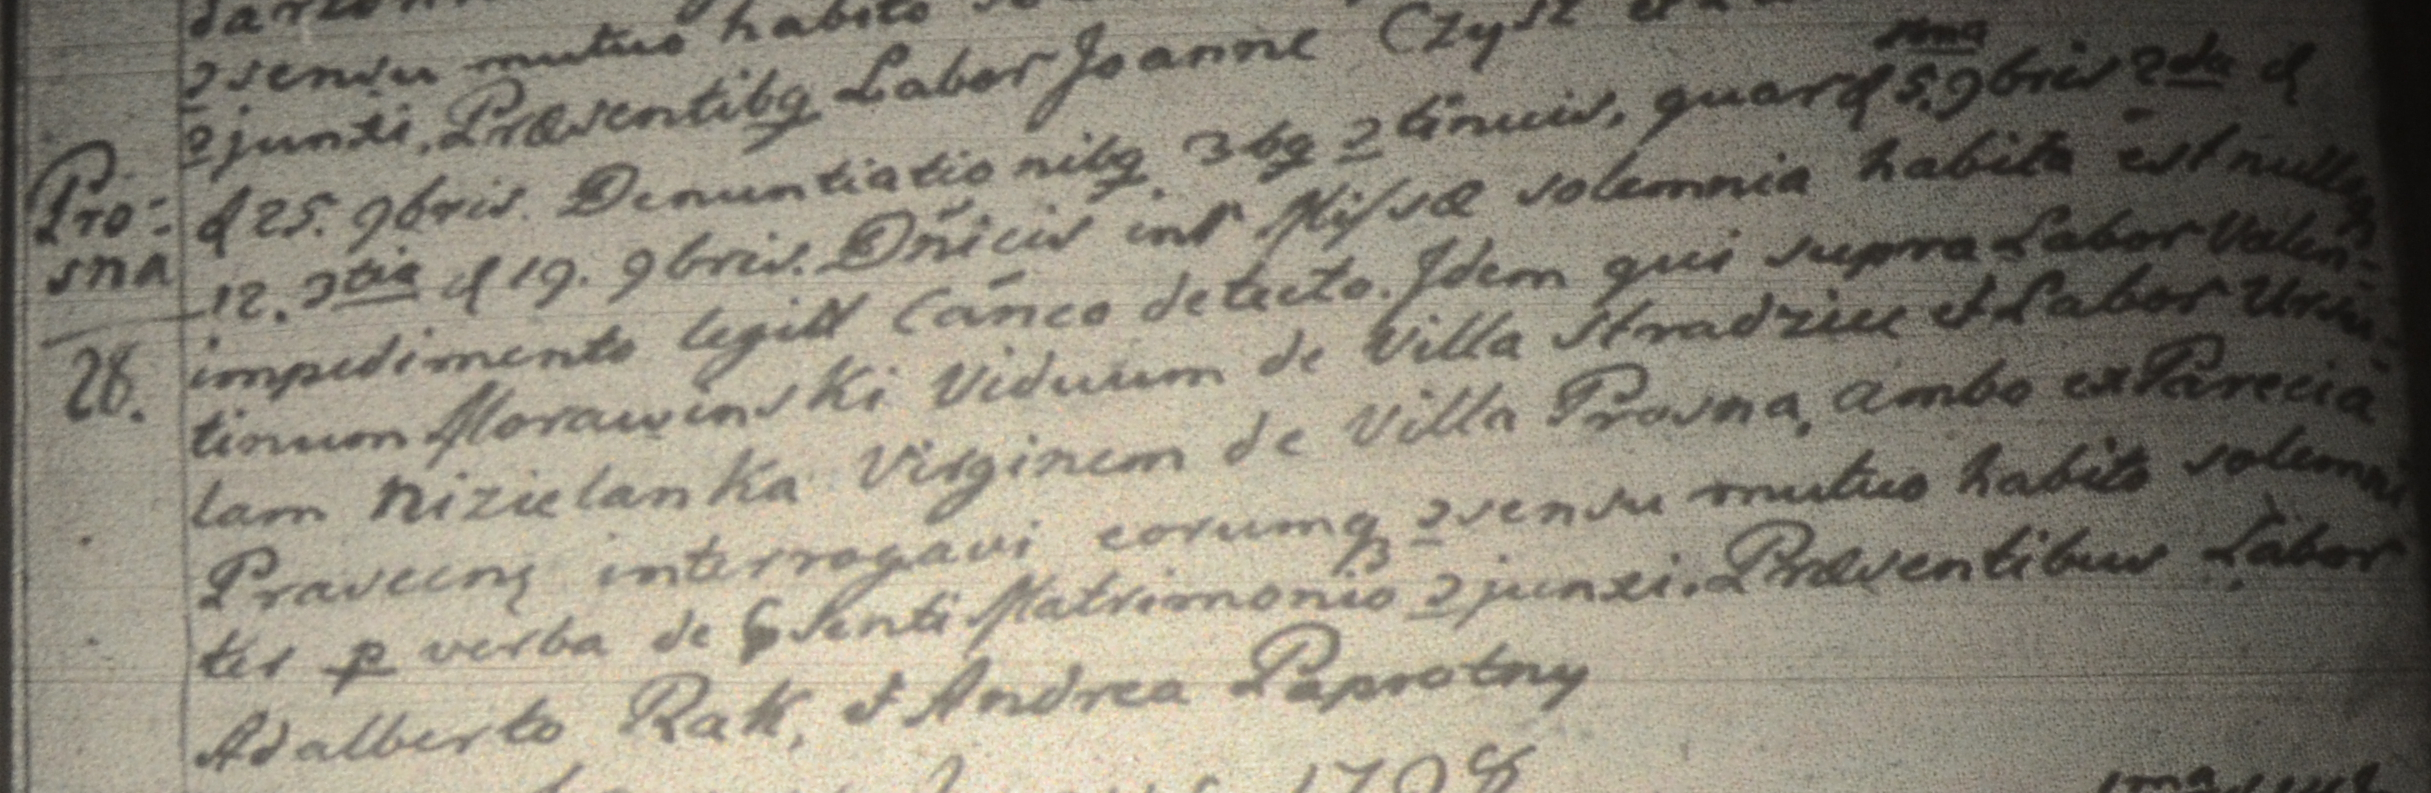 ɔsensu mutuo habito
ɔjunxi. Præsentibq Labor Joanne Czysz et
Pro:
sna
28.
d 25. 9bris. Denuntiationibq 3bq ɔtinuis, quar 1ma d 5. 9bris 2da d
12. 3tia d 19. 9bris. Dñicis intr Missæ solemnia habita est nulloq
impedimento legitt Cañco detecto. Idem qui supra Labor Valen-
tinum Morawinski Viduum de Villa Stradziec et Labor Ursu-
lam Nizielanka Virginem de Villa Prosna, ambo ex Parecia
Prasecinq interrogavi eorumq ɔsensu mutuo habito solemni
ter p verba de psenti Matrimonio ɔjunxi. Præsentibus Labor
Adalberto Rak, et Andrea Paprotny